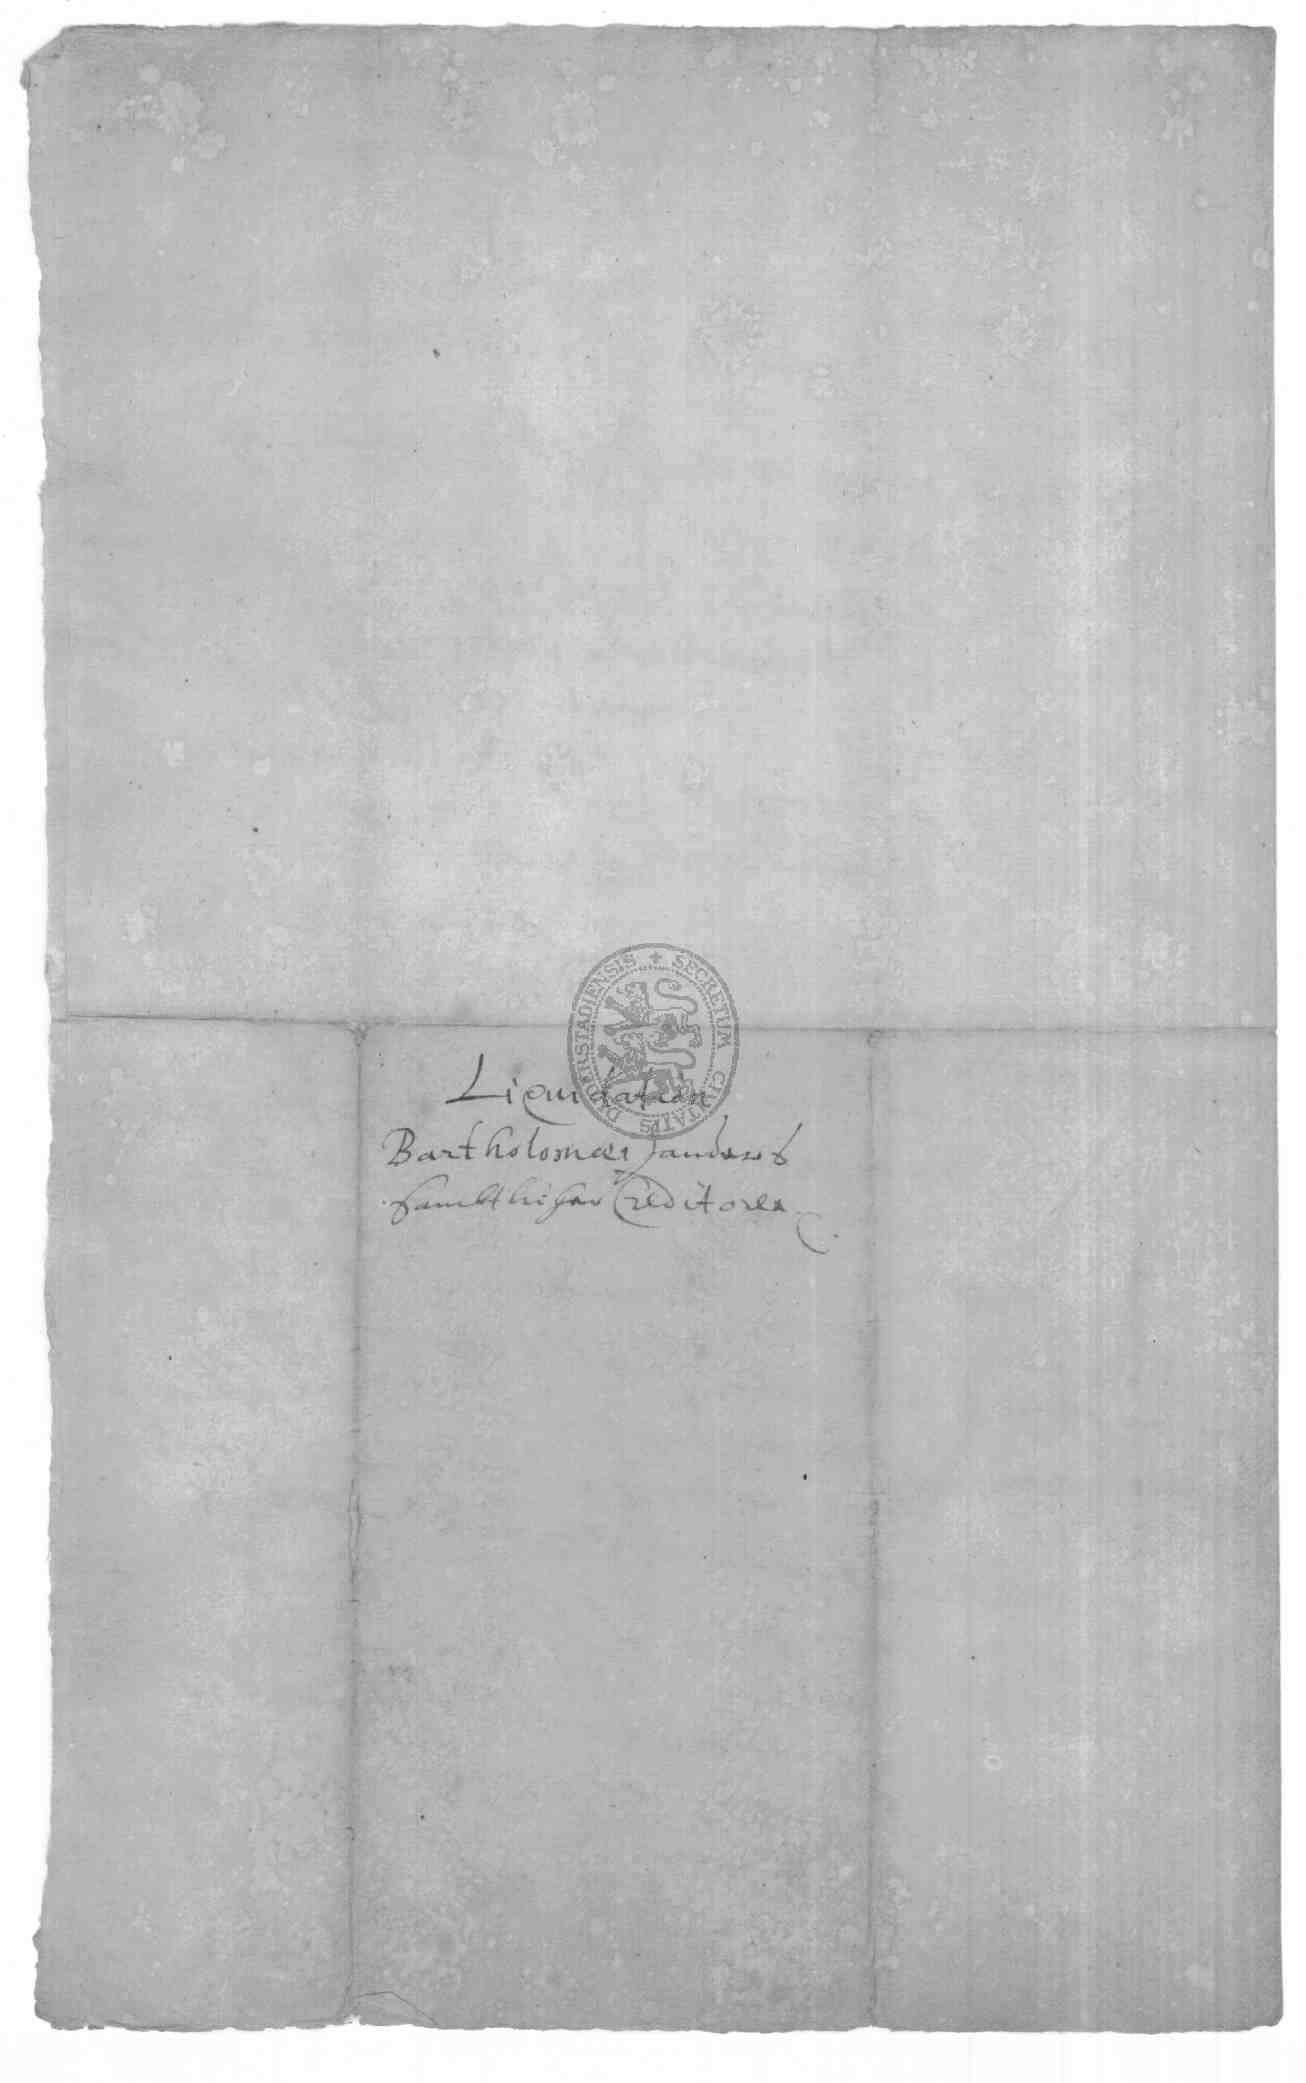 SECRETUM CIVITATIS DUDERSTADIENSIS
Liquidation
Bartholomæi Sanders
sambtlicher Creditoren